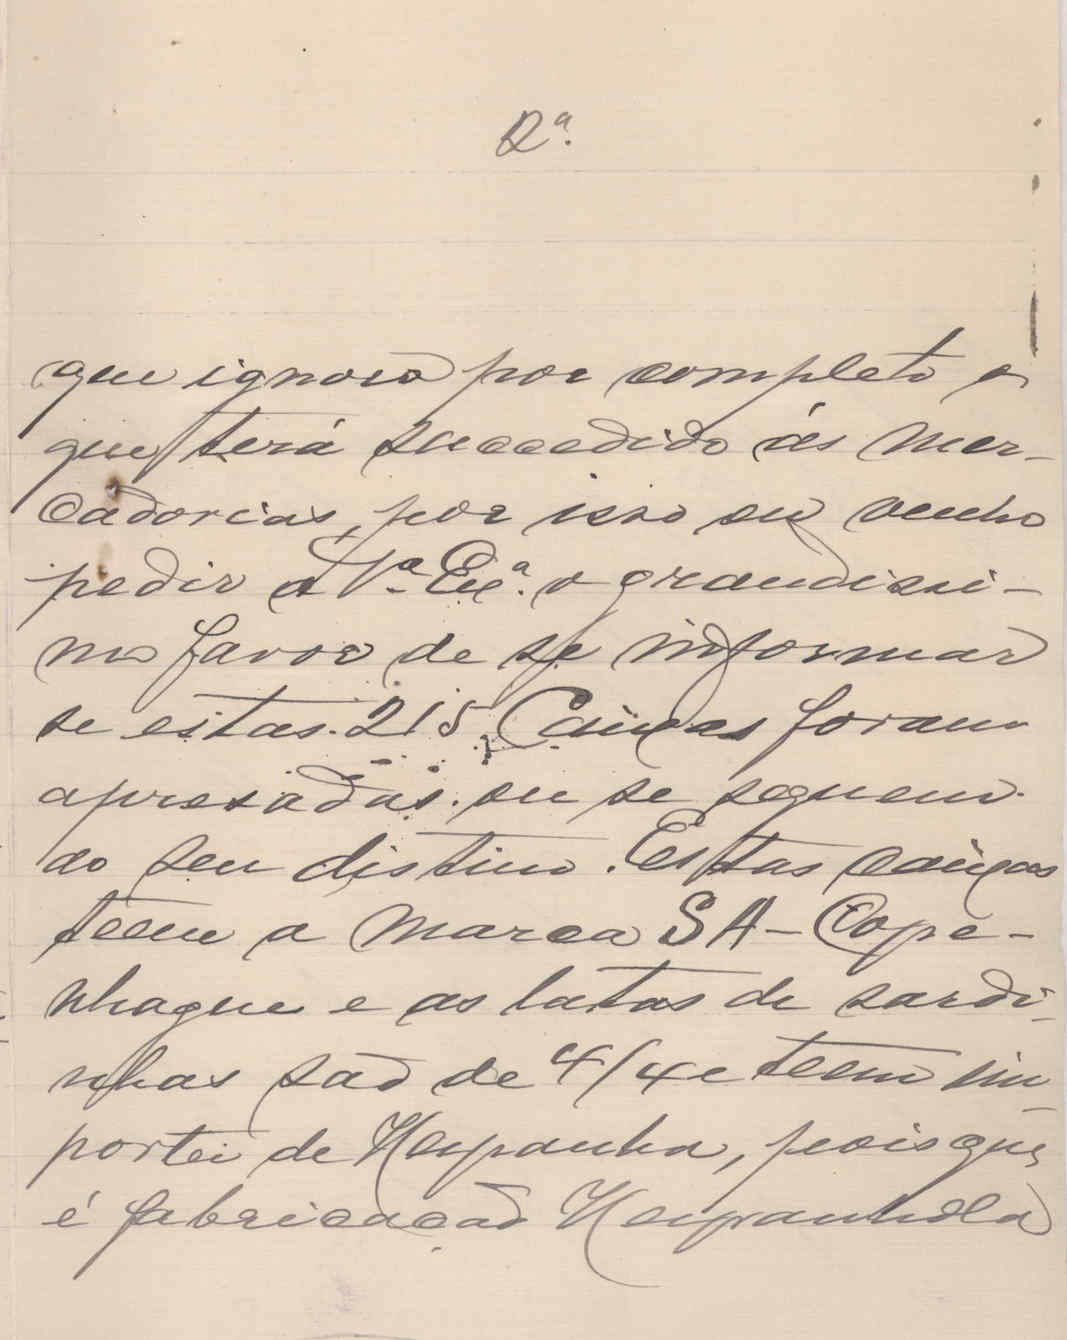 2ª.
que ignoro por completo o
que terá succedido ás mer-
cadorias, por isso eu venho
pedir a Vª. Exª. o grandissi-
mo favor de se informar
se estas 215 Caixas foram
apresadas ou se seguem
ao seu distino. Estas caixas
teem a marca SA - Cope-
nhague e as latas de sardi-
nhas são de 4/4 e teem im-
portei de Hespanha, pois que
é fabricação Hespanhola